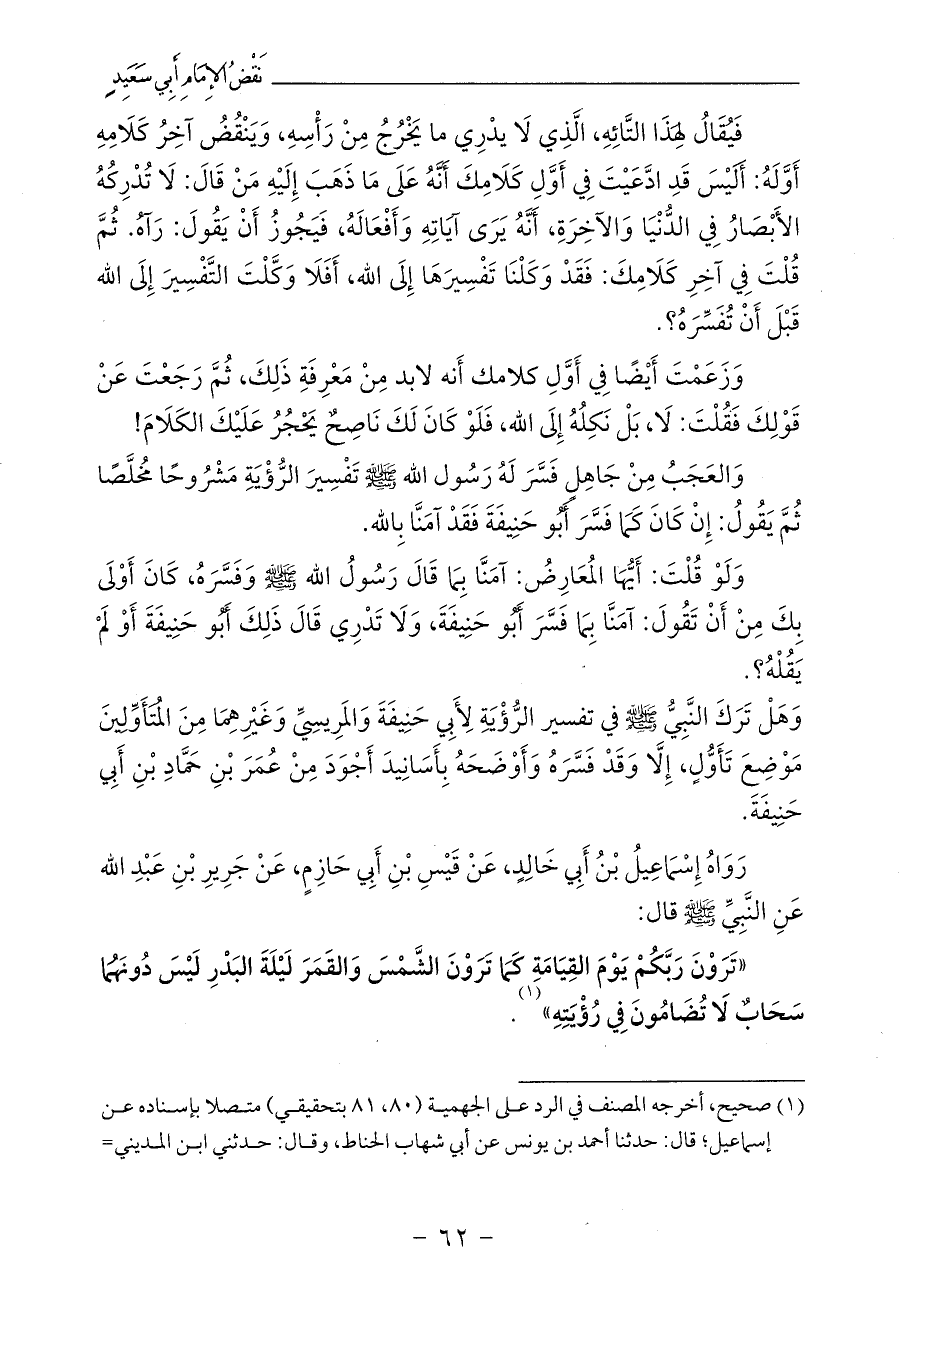 نَقْضُ الإِمَامِ أَبِي سَعَيدٍ
فَيُقَالُ لِهَذَا التَّائِهِ، الَّذِي لَا يدْرِي ما يَخْرُجُ مِنْ رَأْسِهِ، وَيَنْقُضُ آخِرُ كَلَامِهِ
أَوَّلَهُ: أَلَيْسَ قَدِ ادَّعَيْتَ فِي أَوَّلِ كَلامِكَ أَنَّهُ عَلَى مَا ذَهَبَ إِلَيْهِ مَنْ قَالَ: لَا تُدْرِكُهُ
الأَبْصَارُ فِي الدُّنْيَا وَالآخِرَةِ، أَنَّهُ يَرَى آيَاتِهِ وَأَفْعَالَهُ، فَيَجُوزُ أَنْ يَقُولَ: رَآهُ. ثُمَّ
قُلْتَ فِي آخِرِ كَلَامِكَ: فَقَدْ وَكَلْنَا تَفْسِيرَهَا إِلَى الله، أَفَلَا وَكَّلْتَ التَّفْسِيرَ إِلَى الله
قَبْلَ أَنْ تُفَسِّرَهُ؟.
وَزَعَمْتَ أَيْضًا فِي أَوَّلِ كلامك أَنه لابد مِنْ مَعْرِفَةِ ذَلِكَ، ثُمَّ رَجَعْتَ عَنْ
قَوْلِكَ فَقُلْتَ: لَا، بَلْ نَكِلُهُ إِلَى الله، فَلَوْ كَانَ لَكَ نَاصِحٌ يَحْجُرُ عَلَيْكَ الكَلَامَ!
وَالعَجَبُ مِنْ جَاهِلٍ فَسَّرَ لَهُ رَسُول الله ﷺ تَفْسِيرَ الرُّؤْيَةِ مَشْرُوحًا مُخَلَّصًا
ثُمَّ يَقُولُ: إِنْ كَانَ كَمَا فَسَّرَ أَبُو حَنِيفَةَ فَقَدْ آمَنَّا بِالله.
وَلَوْ قُلْتَ: أَيُّهَا المُعَارِضُ: آمَنَّا بِمَا قَالَ رَسُولُ الله ﷺ وَفَسَّرَهُ، كَانَ أَوْلَى
بِكَ مِنْ أَنْ تَقُولَ: آمَنَّا بِمَا فَسَّرَ أَبُو حَنِيفَةَ، وَلَا تَدْرِي قَالَ ذَلِكَ أَبُو حَنِيفَةَ أَوْ لَمْ
يَقُلْهُ؟.
وَهَلْ تَرَكَ النَّبِيُّ ﷺ في تفسير الرُّؤْيَةِ لِأَبِي حَنِيفَةَ وَالمَرِيسِيِّ وَغَيْرِهِمَا مِنَ المُتَأَوِّلِينَ
مَوْضِعَ تَأَوُّلٍ، إِلَّا وَقَدْ فَسَّرَهُ وَأَوْضَحَهُ بِأَسَانِيدَ أَجْوَدَ مِنْ عُمَرَ بْنِ حَمَّادِ بْنِ أَبِي
حَنِيفَةَ.
رَوَاهُ إِسْمَاعِيلُ بْنُ أَبِي خَالِدٍ، عَنْ قَيْسِ بْنِ أَبِي حَازِمٍ، عَنْ جَرِيرِ بْنِ عَبْدِ الله
عَنِ النَّبِيِّ ﷺ قال:
«تَرَوْنَ رَبَّكُمْ يَوْمَ القِيَامَةِ كَمَا تَرَوْنَ الشَّمْسَ وَالقَمَرَ لَيْلَةَ البَدْرِ لَيْسَ دُونَهُمَا
سَحَابٌ لَا تُضَامُونَ فِي رُؤْيَتِهِ»(١).
(١) صحيح، أخرجه المصنف في الرد على الجهمية (٨٠، ٨١ بتحقيقي) متصلا بإسناده عن
إسماعيل؛ قال: حدثنا أحمد بن يونس عن أبي شهاب الحناط، وقال: حدثني ابن المديني=
- ٦٢ -